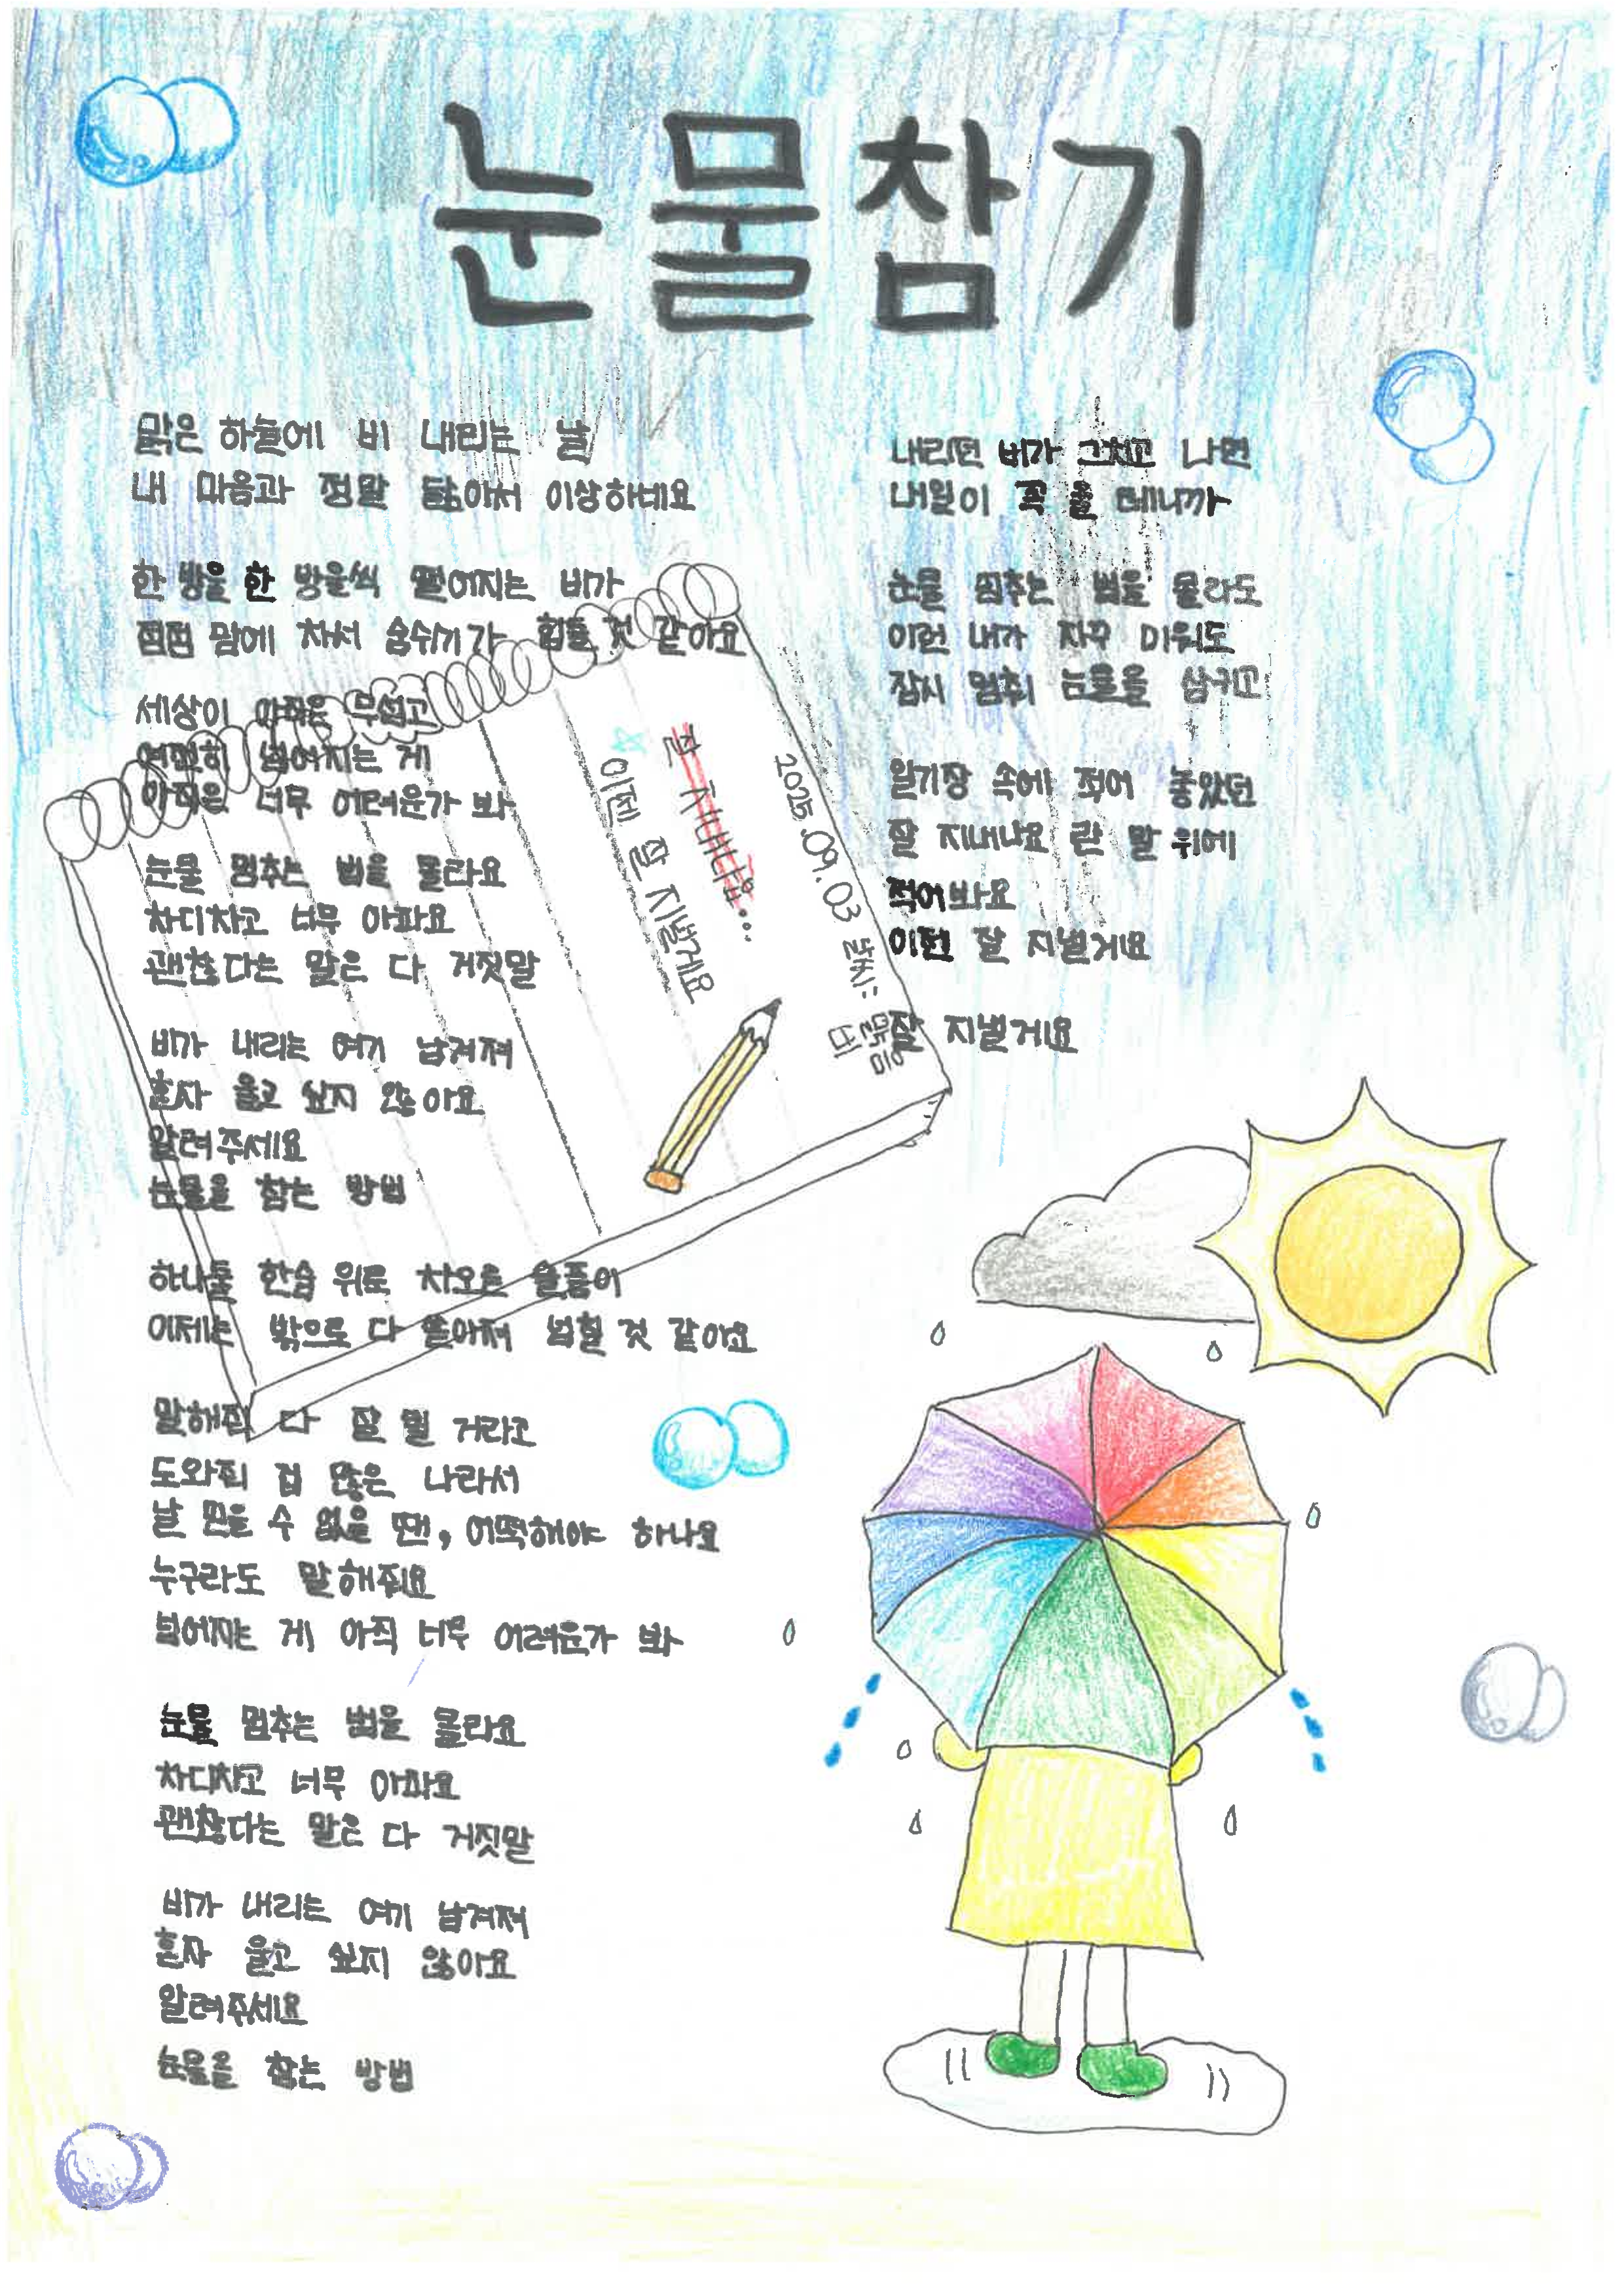 눈물참기
맑은 하늘에 비 내리는 날
내 마음과 정말 닮아서 이상하네요
한 방울 한 방울씩 떨어지는 비가
점점 맘에 차서 숨쉬기가 힘들 것 같아요
세상이 아직은 무섭고
여전히 넘어지는 게
아직은 너무 어려운가 봐
눈물 멈추는 법을 몰라요
차디차고 너무 아파요
괜찮다는 말은 다 거짓말
비가 내리는 여기 남겨져
혼자 울고 싶지 않아요
알려주세요
눈물을 참는 방법
하나둘 한숨 위로 차오른 슬픔이
이제는 밖으로 다 쏟아져 넘칠 것 같아요
말해줘 다 잘 될 거라고
도와줘 겁 많은 나라서
날 믿을 수 없을 땐, 어떡해야 하나요
누구라도 말해줘요
넘어지는 게 아직 너무 어려운가 봐
눈물 멈추는 법을 몰라요
차디차고 너무 아파요
괜찮다는 말은 다 거짓말
비가 내리는 여기 남겨져
혼자 울고 싶지 않아요
알려주세요
눈물을 참는 방법
내리던 비가 그치고 나면
내일이 꼭 올 테니까
눈물 멈추는 법을 몰라도
이런 내가 자꾸 미워도
잠시 멈춰 눈물을 삼키고
일기장 속에 적어 놓았던
잘 지내나요 란 말 위에
적어봐요
이젠 잘 지낼게요
잘 지낼게요
2025.09.03 날씨: 맑음
비
잘 지내나요...
☆ 이젠 잘 지낼게요